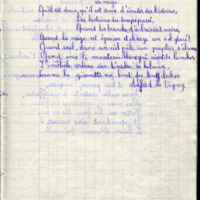 Qu'il est doux, qu'il est doux d'écouter des histoires,
Des histoires du temps passé,
Quand les branches d'arbres sont noires,
Quand la neige est épaisse et charge un sol glacé!
Quand seul dans un ciel pâle un peuplier s'élance
Quand sous le manteau blanc qui vient de le cacher
L'immobile corbeau sur l'arbre se balance
Comme la girouette au bout du long clocher
Alfred de Vigny